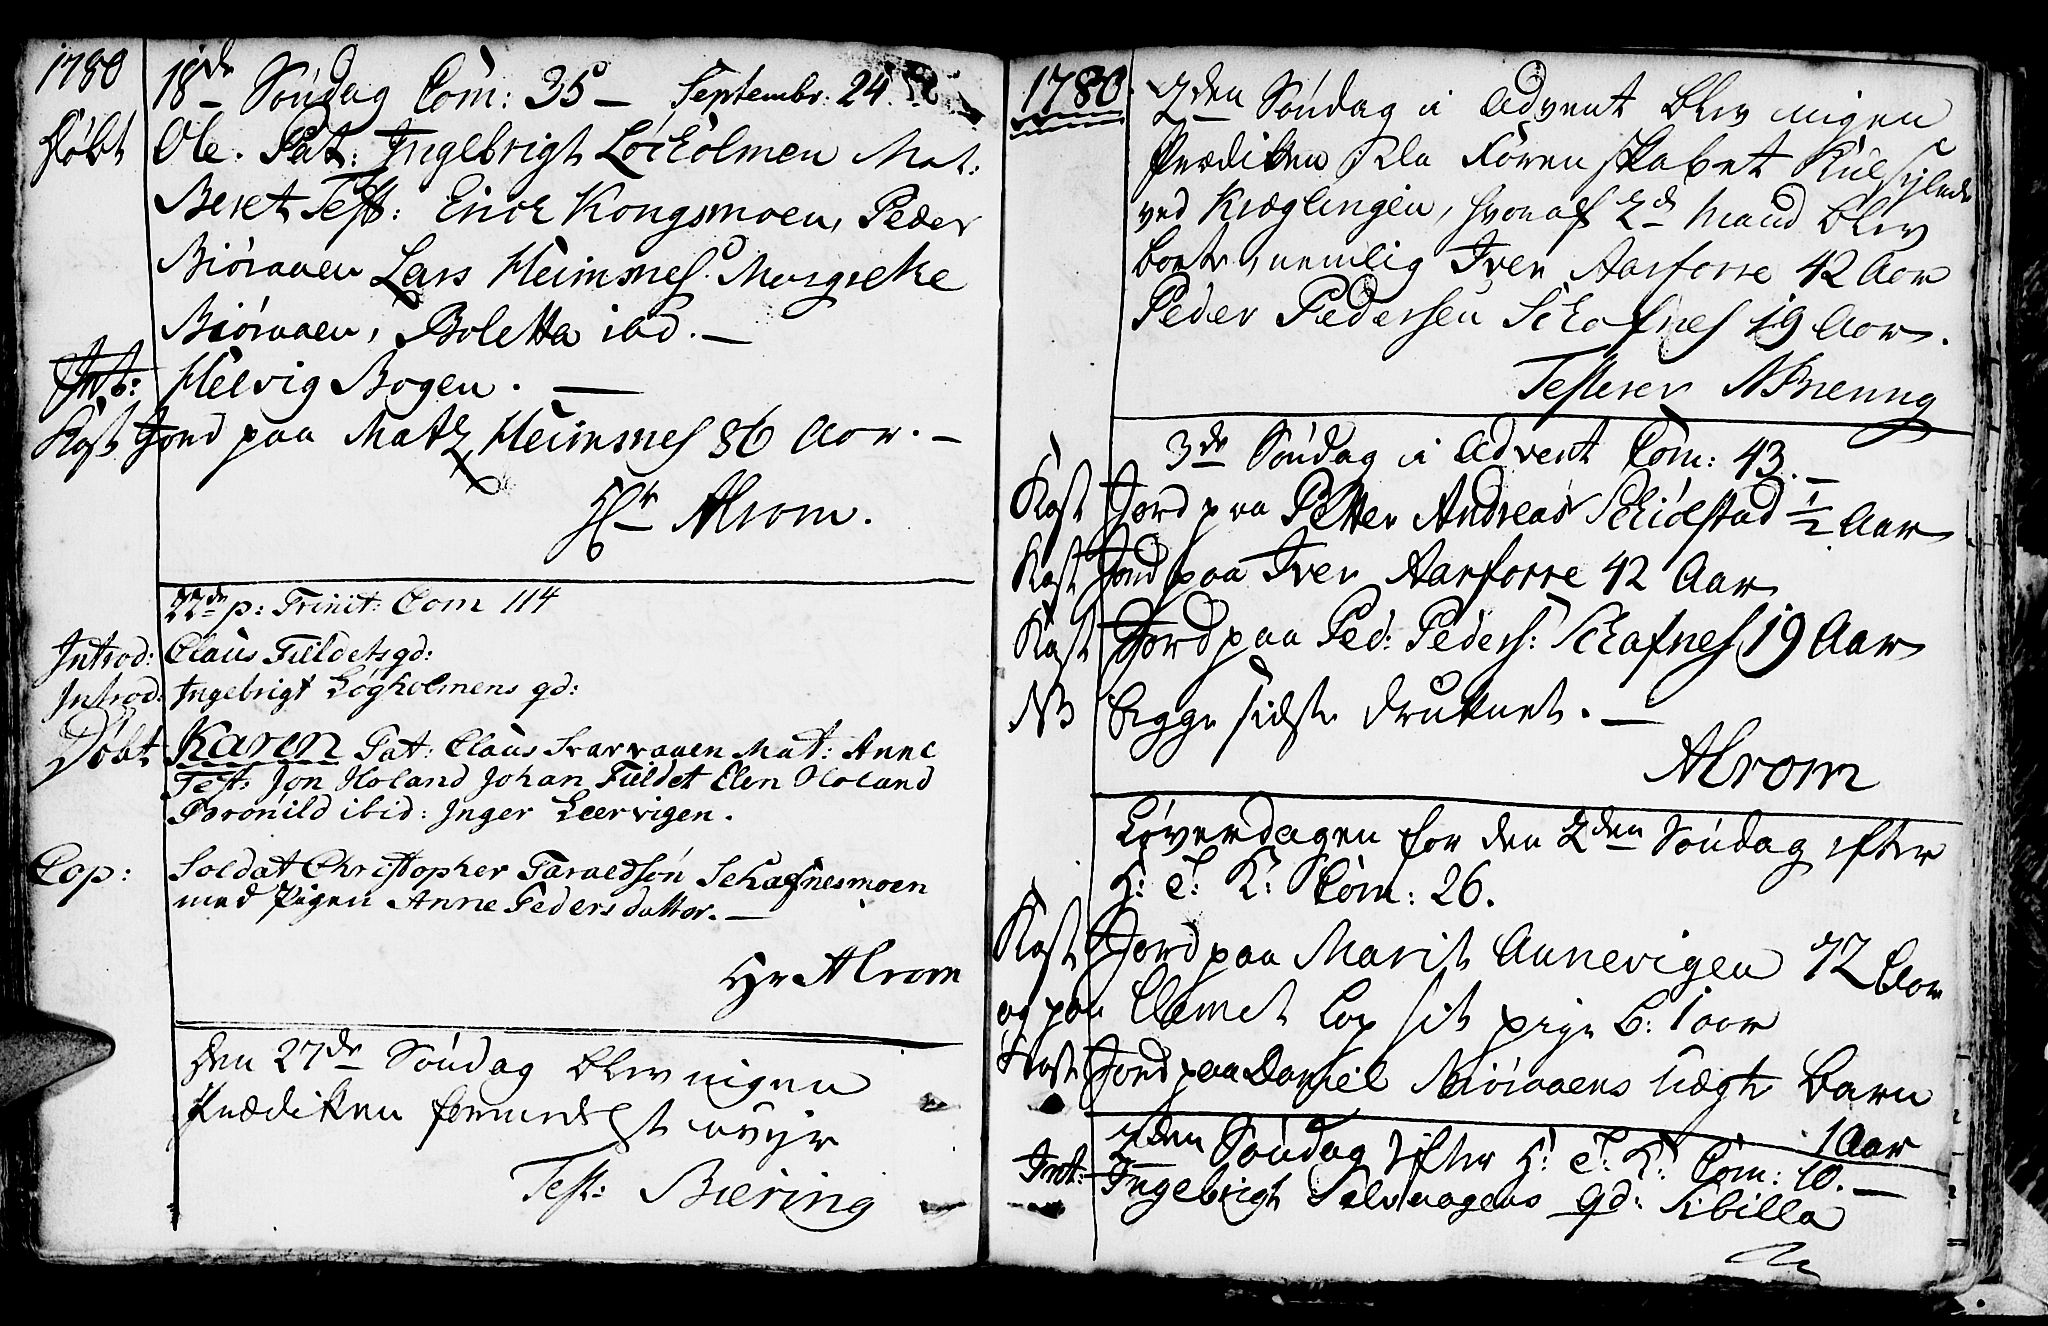 1780
18de Søndag Com: 35 – Septembr: 24.
Døbt Ole. Pat: Ingebrigt Løckolmen Mat:
Beret Test: Enok Kongsmoen, Peder
Biøraaen Lars Heimsnes. Margrethe
Biøraaen, Boletta ibd. –
Int: Helvig Bogen. –
Kast Jord paa Matz Heimsnes 86 Aar. –
Hr Alrom.
22de p: Trinit: Com 114
Introd: Claus Fieldets qd:
Introd: Ingebrigt Løgholmens qd:
Døbt Karen Pat: Claus Svarvaaen Mat: Anne
Test: Jon Høland Johan Fieldet Elen Høland
Baronild ibid: Inger Leervigen.
Cop: Soldat Christopher Taraldsøn Schafnesmoen
med Pigen Anne Pedersdatter. –
Hr Alrom
Den 27de Søndag blev ingen
Prædiken formedelst uvejr
Test: Biering
1780
2den Søndag i Advent blev ingen
Prædiken da Førenskabet Kulsejlede
ved Kræglingen, hvoraf 2de Mand blev
borte, nemlig Iver Aarforre 42 Aar
Peder Pedersen Schafnes 19 Aar.
Testerer
3de Søndag i Advent Com: 43. –
Kast Jord paa Petter Andreas Schiølstad 1/2 Aar
Kast Jord paa Iver Aarforre 42 Aar
Kast Jord paa Ped: Peders: Schafnes 19 Aar
NB Begge sidste druknet. –
Alrom
Løverdagen for den 2den Søndag efter
H: T: K: Com: 26.
Kast Jord paa Marit Aunevigen 72 Aar
og paa Clemet Lop sit pige b: 1 aar
Kast Jord paa Daniel Biøraaens Uægte Barn
1 Aar
2den Søndag efter H: T: K: Com: 10. –
Int: Ingebrigt Selvaagens qd: Sibilla